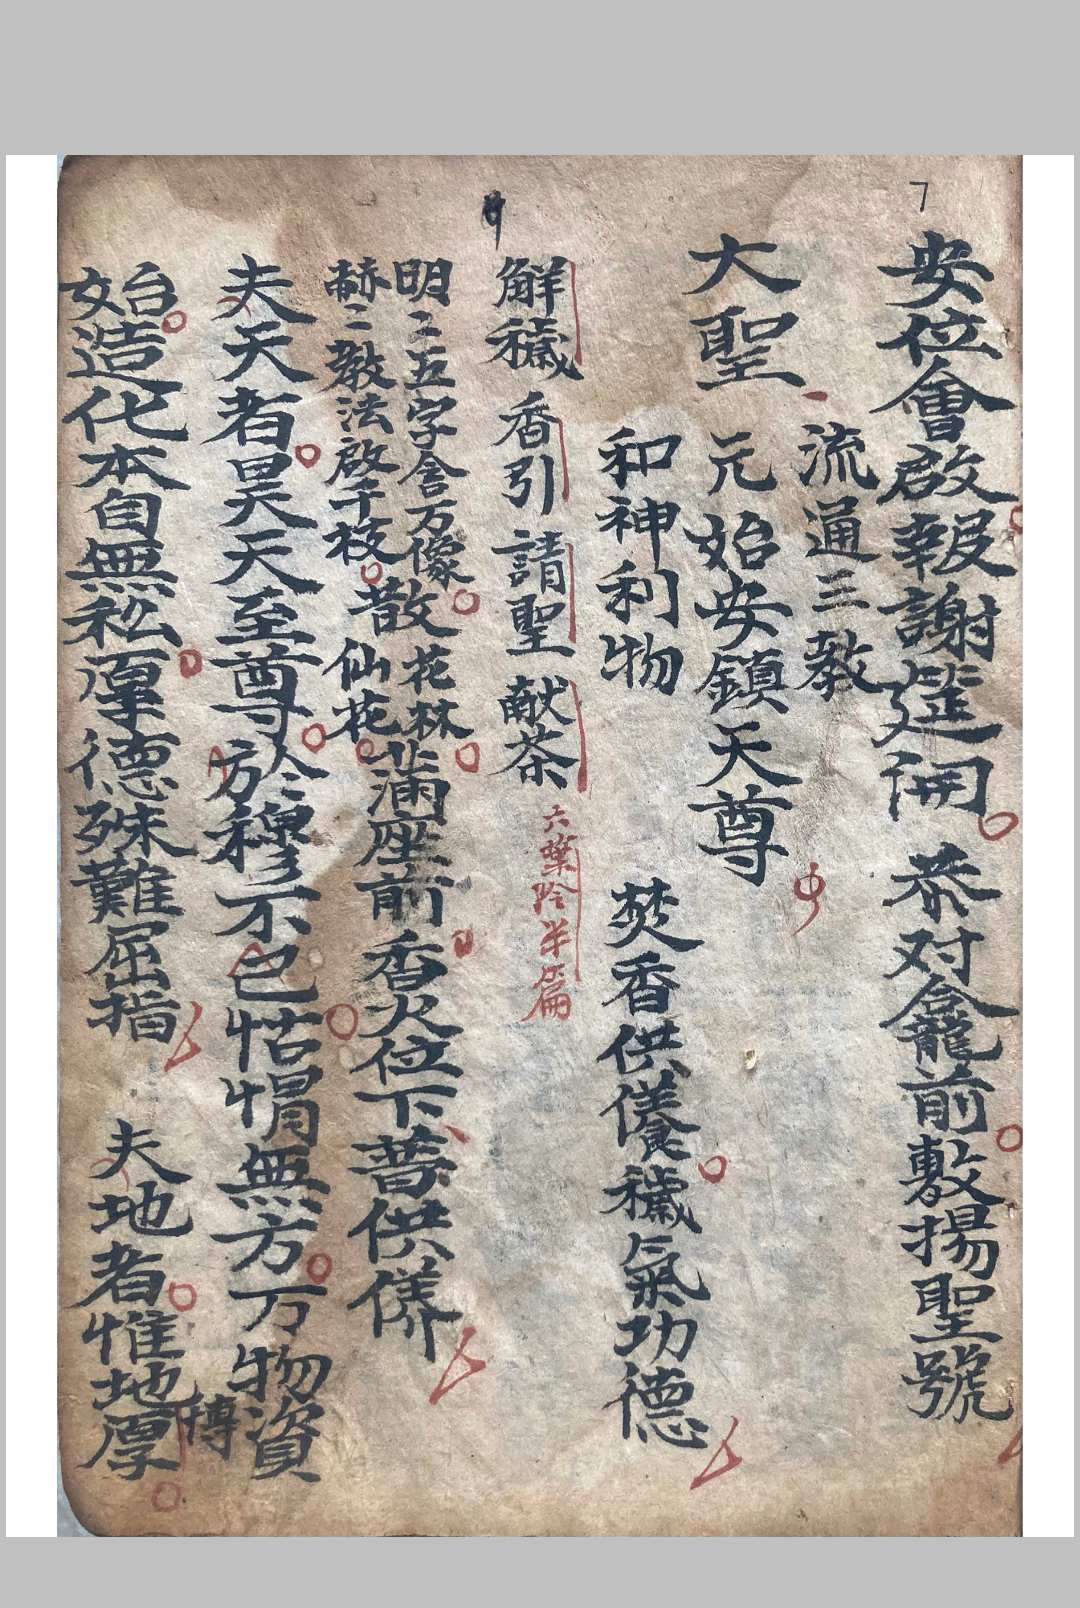 7
安位會啟報謝筵開恭对龕前敷揚聖號
流通三教
大聖元始安鎮天尊
和神利物焚香供養穢氣功德
解穢香引請聖献茶
六葉
半篇
明二五字含万像散花林满座前香火位下普供養
赫二教法啟千枝仙花
夫天者昊天至尊
不已怙惘無方万物資
始造化本自無私厚德殊難屈指夫地者惟地厚
博